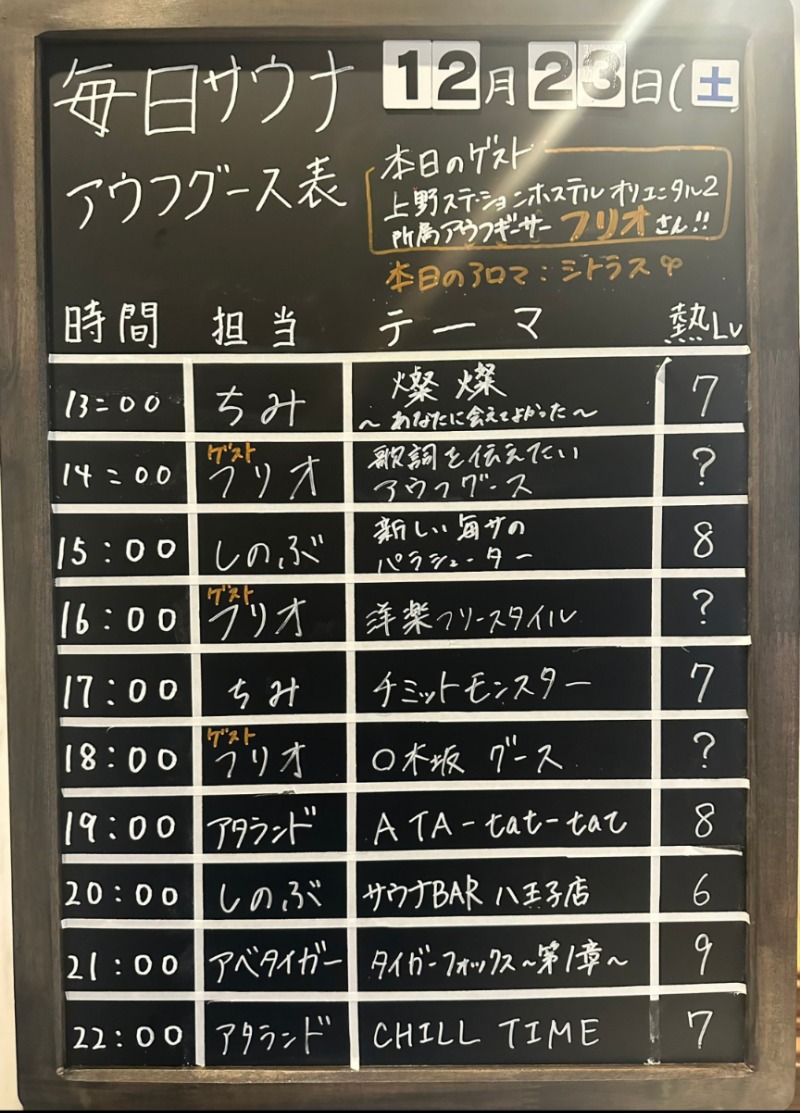 毎日サウナ
アウフグース表
12月23日(土)
本日のゲスト
上野ステーションホステル オリエンタル2
所属アウフギーサー フリオさん!!
本日のアロマ:シトラス
時間 担当 テーマ 熱Lv
13:00 ちみ 燦燦 7
~あなたに会えてよかった~
14:00 ゲスト フリオ 歌詞を伝えたい ?
アウフグース
15:00 しのぶ 新しい毎サの 8
パラシューター
16:00 ゲスト フリオ 洋楽フリースタイル ?
17:00 ちみ チミットモンスター 7
18:00 ゲスト フリオ 〇木坂 グース ?
19:00 アタランド ATA-tat-tat 8
20:00 しのぶ サウナBAR 八王子店 6
21:00 アベタイガー タイガーフォックス~第1章~ 9
22:00 アタランド CHILL TIME 7